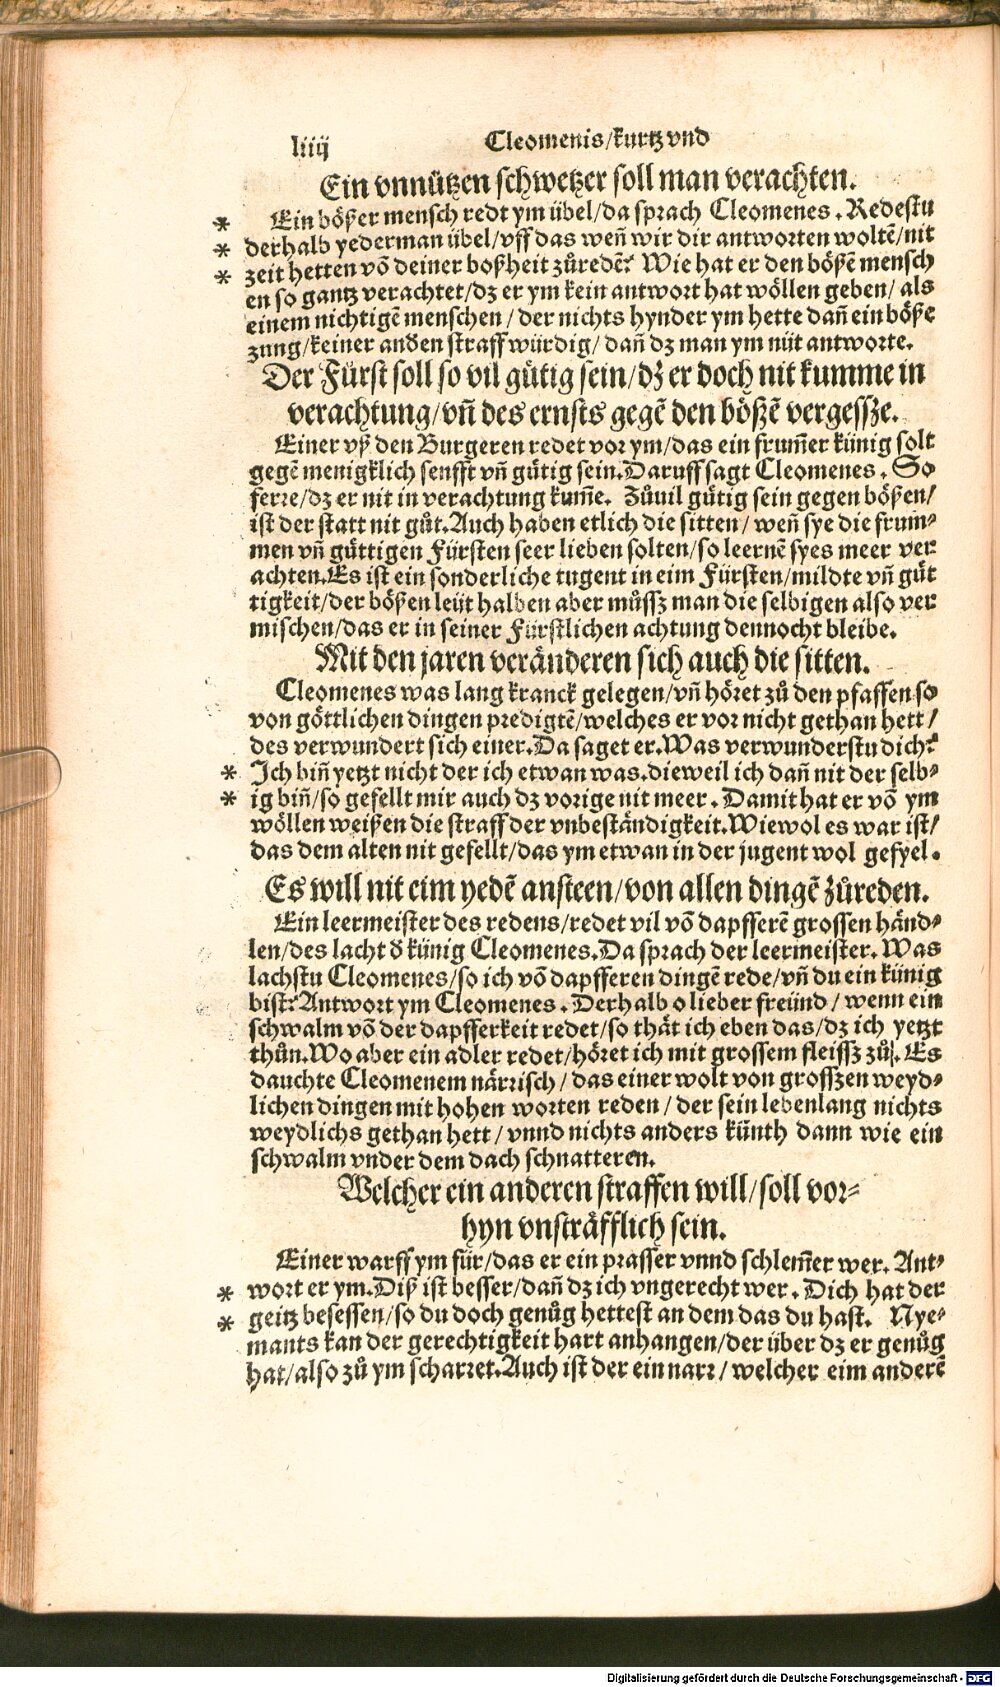 liiij Cleomenis/kurtz vnd
Ein vnnützen schwetzer soll man verachten.
* Ein bößer mensch redt ym übel/da sprach Cleomenes. Redestu
* derhalb yederman übel/vff das weñ wir dir antworten woltẽ/nit
* zeit hetten võ deiner boßheit zůredẽ? Wie hat er den bößẽ mensch
en so gantz verachtet/dz er ym kein antwort hat wöllen geben/ als
einem nichtigẽ menschen/der nichts hynder ym hette dañ ein böße
zung/keiner anđen straff würdig/dañ dz man ym nüt antworte.
Der Fürst soll so vil gütig sein/dz er doch nit kumme in
verachtung/vñ des ernsts gegẽ den bößẽ vergessze.
Einer vß den Burgeren redet vor ym/das ein frum̃er künig solt
gegẽ menigklich senfft vñ gütig sein. Daruff sagt Cleomenes. So
ferre/dz er nit in verachtung kum̃e. Zůuil gütig sein gegen bößen/
ist der statt nit gůt. Auch haben etlich die sitten/weñ sye die frum⸗
men vñ güttigen Fürsten seer lieben solten/so leernẽ syes meer ver
achten. Es ist ein sonderliche tugent in eim Fürsten/mildte vñ güt
tigkeit/der bößen leüt halben aber můssz man die selbigen also ver
mischen/das er in seiner Fürstlichen achtung dennocht bleibe.
Mit den jaren veränderen sich auch die sitten.
Cleomenes was lang kranck gelegen/vñ höret zů den pfaffen so
von göttlichen dingen predigtẽ/welches er vor nicht gethan hett/
des verwundert sich einer. Da saget er. Was verwunderstu dich?
* Ich biñ yetzt nicht der ich etwan was. dieweil ich dañ nit der selb⸗
* ig biñ/so gefellt mir auch dz vorige nit meer. Damit hat er võ ym
wöllen weißen die straff der vnbeständigkeit. Wiewol es war ist/
das dem alten nit gefellt/das ym etwan in der jugent wol gefyel.
Es will nit eim yedẽ ansteen/von allen dingẽ zůreden.
Ein leermeister des redens/redet vil võ dapfferẽ grossen händ⸗
len/des lacht đ künig Cleomenes. Da sprach der leermeister. Was
lachstu Cleomenes/so ich võ dapfferen dingẽ rede/vñ du ein künig
bist? Antwort ym Cleomenes. Derhalb o lieber freünd/wenn ein
schwalm võ der dapfferkeit redet/so thät ich eben das/dz ich yetzt
thůn. Wo aber ein adler redet/höret ich mit grossem fleissz zů. Es
dauchte Cleomenem närrisch/das einer wolt von grosszen weyd⸗
lichen dingen mit hohen worten reden/der sein lebenlang nichts
weydlichs gethan hett/vnnd nichts anders künth dann wie ein
schwalm vnder dem dach schnatteren.
Welcher ein anderen straffen will/soll vor⸗
hyn vnsträfflich sein.
Einer warff ym für/das er ein prasser vnnd schlem̃er wer. Ant⸗
* wort er ym. Diß ist besser/dañ dz ich vngerecht wer. Dich hat der
* geitz besessen/so du doch genůg hettest an dem das du hast. Nye⸗
mants kan der gerechtigkeit hart anhangen/der über dz er genůg
hat/also zů ym scharret. Auch ist der ein narr/welcher eim anderẽ
Digitalisierung gefördert durch die Deutsche Forschungsgemeinschaft - DFG